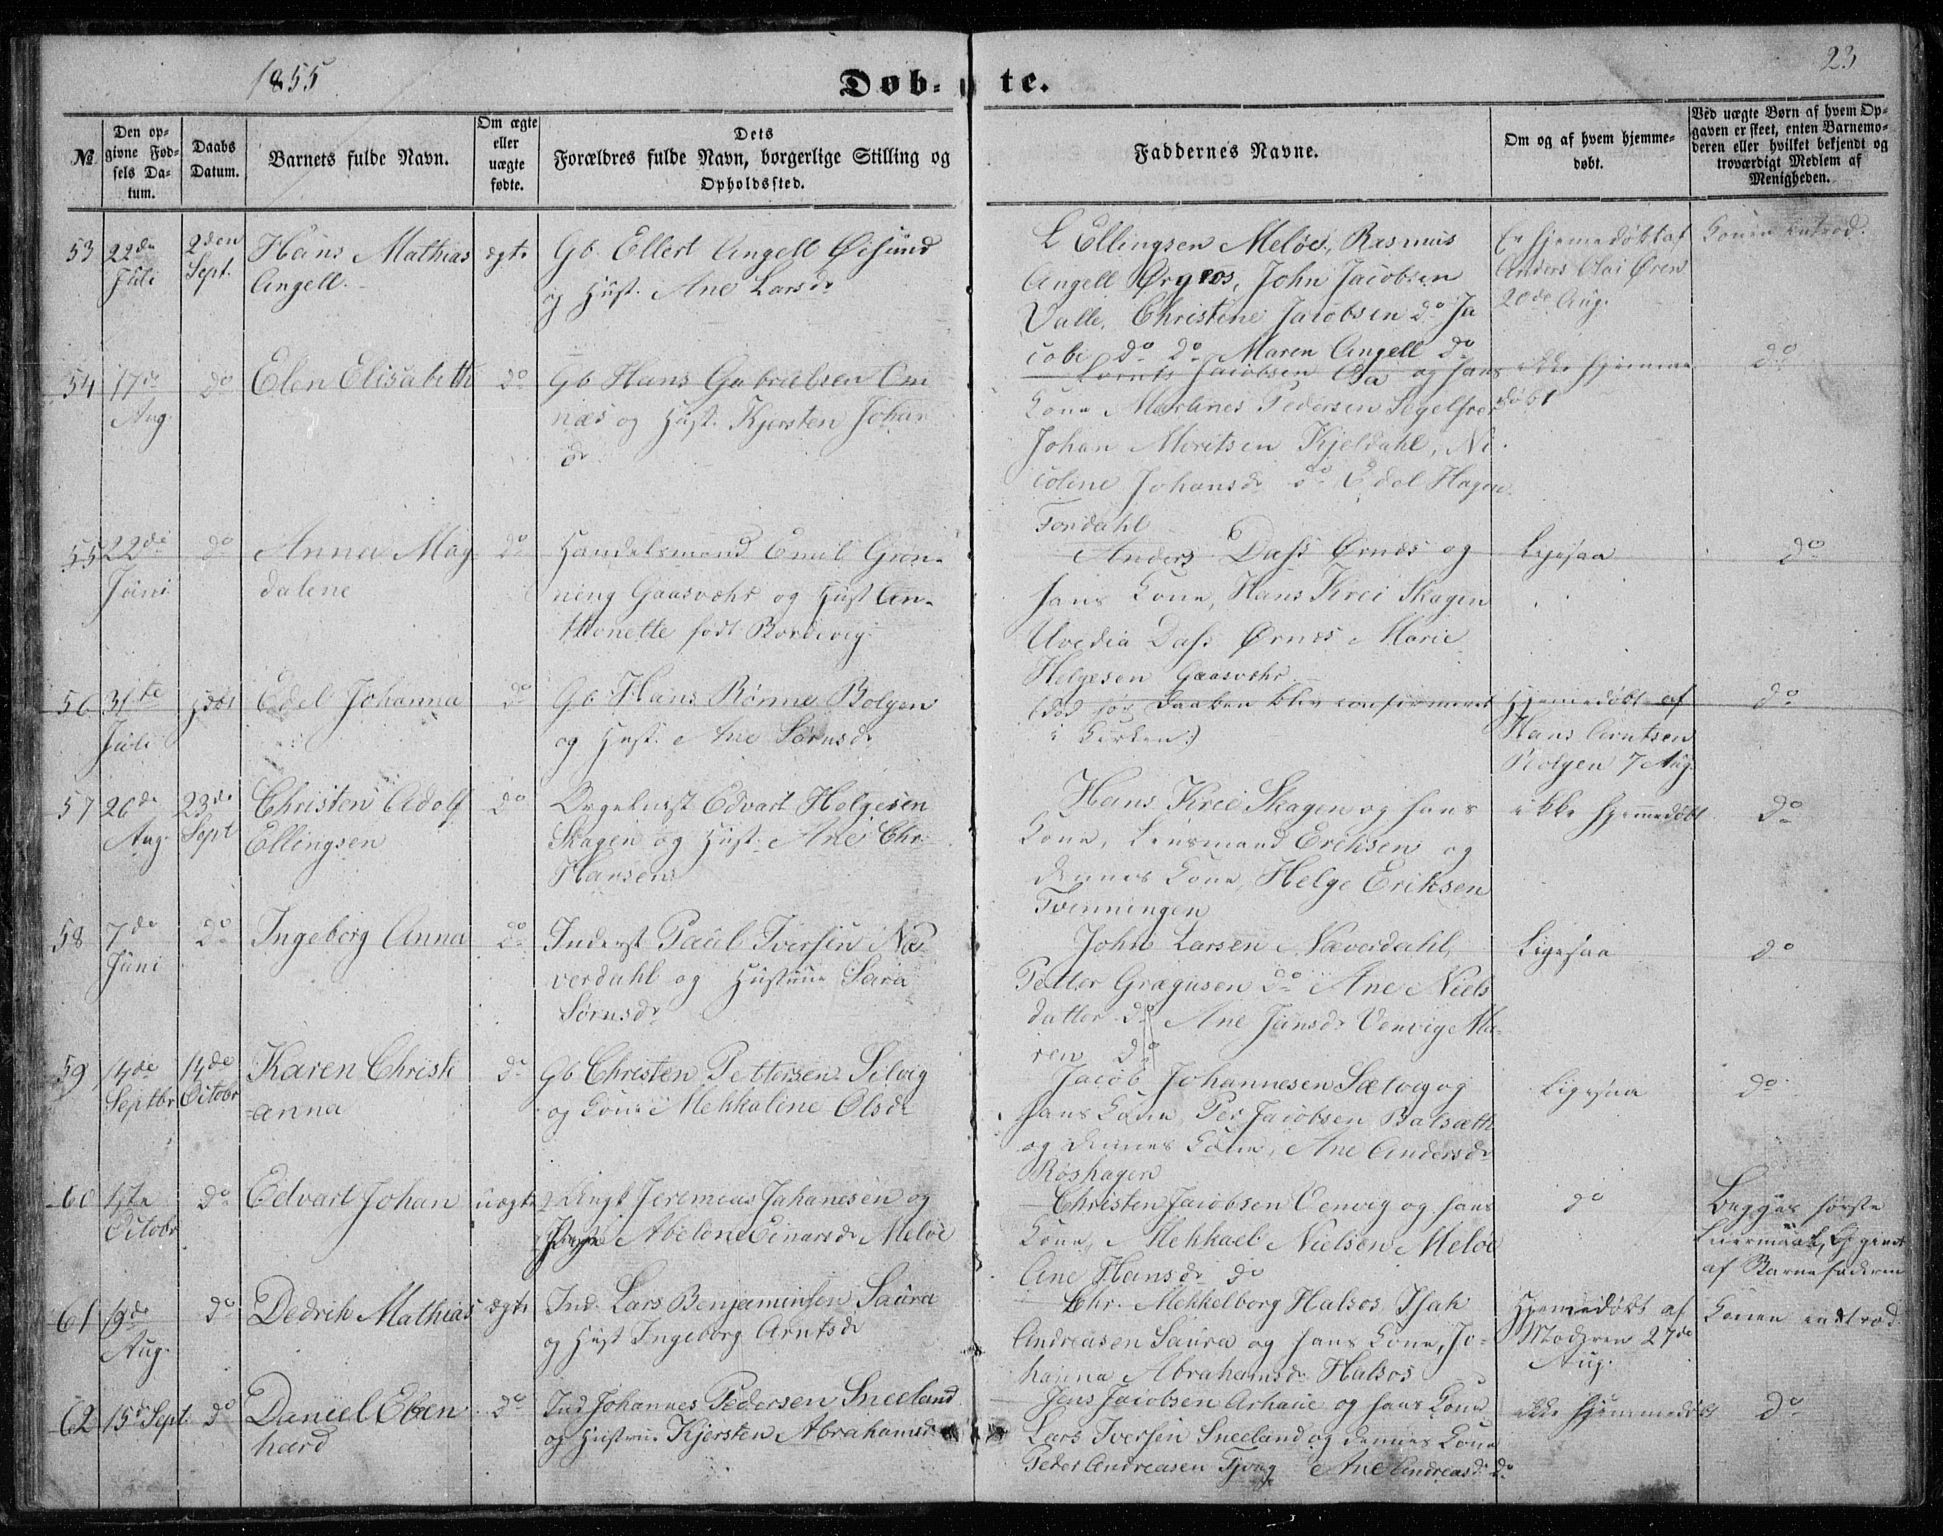 1855
Døb-te.
23
№
Den opgivne Fødsels Datum.
Daabs Datum.
Barnets fulde Navn.
Om ægte eller uægte fødte.
Dets Forældres fulde Navn, borgerlige Stilling og Opholdssted.
Faddernes Navne.
Om og af hvem hjemmedøbt.
Ved uægte Børn af hvem Opgaven er skeet, enten Barnemoderen eller hvilket bekjendt og troværdigt Medlem af Menigheden.
53 22de Juli
2den Sept.
Hans Mathias
Angell.
ægte
Gb. Ellert Angell Øisund
og Hust. Ane Larsdr
L Ellingsen Meløe, Rasmus
Angell Ørnes, John Jacobsen
Valle, Christine Jacobsen do Ja
cobi do do Maren Angell do
Er hjemmedøbt af
Anders Olai Ørens
20de Aug.
Konen introd.
54 17de Aug.
do
Elen Elisabeth
do
Gb Hans Gabrielsen
næs og Hust. Kjersten Johan
dr
Jacobsen og hans
Kone Martines Pedersen Segelfor
Johan Moritsen Kjeldahl, Ni
coline Johansdr do Edel Hagen
Fondahl
ikke hjemme
døbt
do
55 22de Juni
do
Anna Mag
dalene
do
Handelsmand Emil Grøn-
ning Gaasvær og Hust An-
thonette født Bordevig
Anders Dass Ørnes og
hans Kone, Hans Krei Skagen
Uvedia Dass Ørnes Marie
Helgesen Gaasvær
Ligesaa
do
56 31te Juli
Edel Johanna
do
Gb Hans Rønne Bolgen
og Hust. Ane Sørnsdr
(død før Daaben blev confirmeret
i Kirken.)
Hjemmedøbt af
Hans Arntsen
Bolgen 7 Aug.
do
57 26de Aug.
23de Sept
Christen Adolf
Ellingsen
do
Edvart Helgesen
Skagen og Hust. Ane Chr.
Hansen
Hans Krei Skagen og hans
Kone, Lensmand Eriksen og
dennes Kone, Helge Eriksen
Tvenningen
ikke hjemmedøbt
do
58 7de Juni
do
Ingeborg Anna
do
Inderst Paul Iversen Næ-
verdahl og Hustrue Sara
Sørnsdr
John Larsen Næverdahl,
Petter Grægusen do Ane Niels
datter do Ane Jensdr Venvig Ma-
ren do
Ligesaa
do
59 14de Septbr
14de Octobr
Karen Christi
anna
do
Gb Christen Pettersen Selvig
og Kone Mekkaline Olsdr
Jacob Johannesen Sælvig og
hans Kone, Per Jacobsen Balsæth
og dennes Kone, Ane Andersdr
Røshagen
Ligesaa
do
60 1ste Octobr
do
Edvart Johan
uægte
Ungk Jeremias Johanesen og
Pige Abelone Einarsdr Meløe
Christen Jacobsen Venvig og hans
Kone, Mekkael Nielsen Meløe
Ane Hansdr do
do
Begges første
Leiermaal, Opgivet
af Barnefaderen
61 19de Aug.
do
Dedrik Mathias
ægte
Ind. Lars Benjaminsen Saura
og Hust Ingeborg Arntsdr
Chr. Mekkelborg Halsos, Isak
Andreasen Saura og hans Kone, Jo-
hanna Abrahamsdr Halsos
Hjemmedøbt af
Moderen 27de
Aug.
Konen introd
62 15de Sept.
do
Daniel Eben
hard
do
Ind Johannes Pedersen Sneeland
og Hustrue Kjersten Abrahamsdr
Jens Jacobsen Arhaue og hans Kone
Lars Iversen Sneeland og dennes Kone
Peder Andreasen Tjong Ane Andreasdr do
ikke hjemmedøbt
do